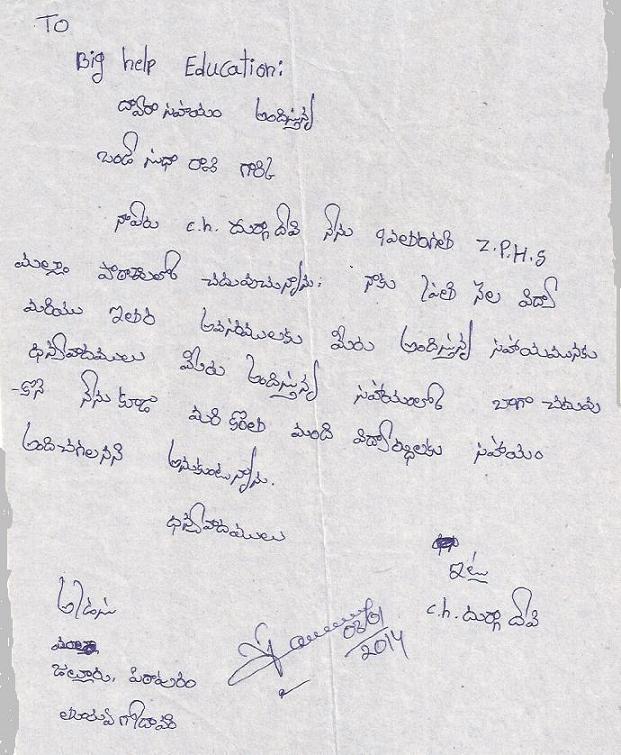 TO
Big help Education:
ద్వారా సహాయం అందిస్తున్న
బండి సుధా రాణి గారికి
నాపేరు c.h. దుర్గా దేవి నేను 9వతరగతి Z.P.H.S
మల్లాం పాఠశాలలో చదువుచున్నాను. నాకు ప్రతి నెల విద్యా
మరియు ఇతర అవసరములకు మీరు అందిస్తున్న సహాయమునకు
ధన్యవాదములు మీరు అందిస్తున్న సహాయంలో బాగా చదువు
-కొని నేను కూడా మరి కొంత మంది విద్యార్థులకు సహాయం
అందించగలనని అనుకుంటున్నాను.
ధన్యవాదములు
ఇట్లు
c.h. దుర్గా దేవి
అడ్రసు
జల్లూరు, పిఠాపురం
తూర్పు గోదావరి
08/01
2014